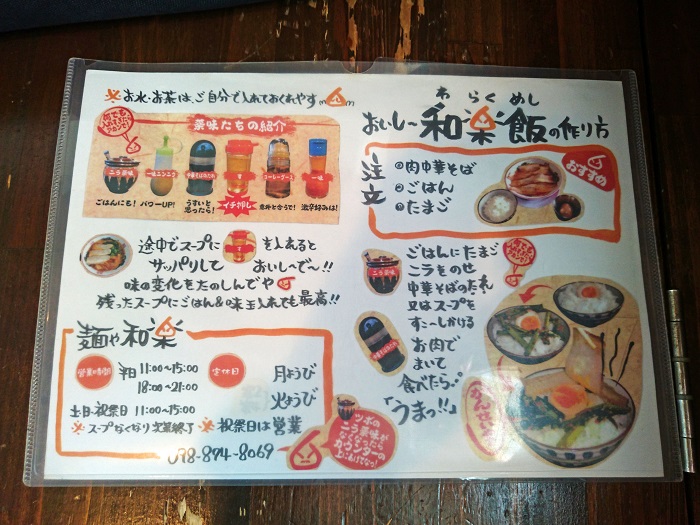 ※お水・お茶は、ご自分で入れておくれやす
薬味たちの紹介
ニラ薬味
一味ニンニク
中華そばのたれ
す
コーレーグース
一味
ごはんにも!
パワーUP!
うすいと思ったら!
イチ押し
意外と合うで!
激辛好みは!
途中でスープに す を入れると
サッパリして おいしいで〜!!
味の変化をたのしんでや
残ったスープにごはん&味玉入れても最高!!
麺や和楽
営業時間
平日 11:00〜15:00
18:00〜21:00
土日・祝祭日 11:00〜15:00
※スープなくなり次第終了
定休日
月ようび
火ようび
※祝祭日は営業
098-894-8069
ツボの
ニラ薬味が
なくなったら
カウンターの
上にあげてなっ!
わらくめし
おいし〜和楽飯の作り方
注文
①肉中華そば
②ごはん
③たまご
おすすめ
ニラ薬味
ごはんにたまご
ニラをのせ
中華そばのたれ
又はスープを
すこーしかける
中華そばのたれ
お肉で
まいて
食べたら。
「うまっ!!」
かんせい